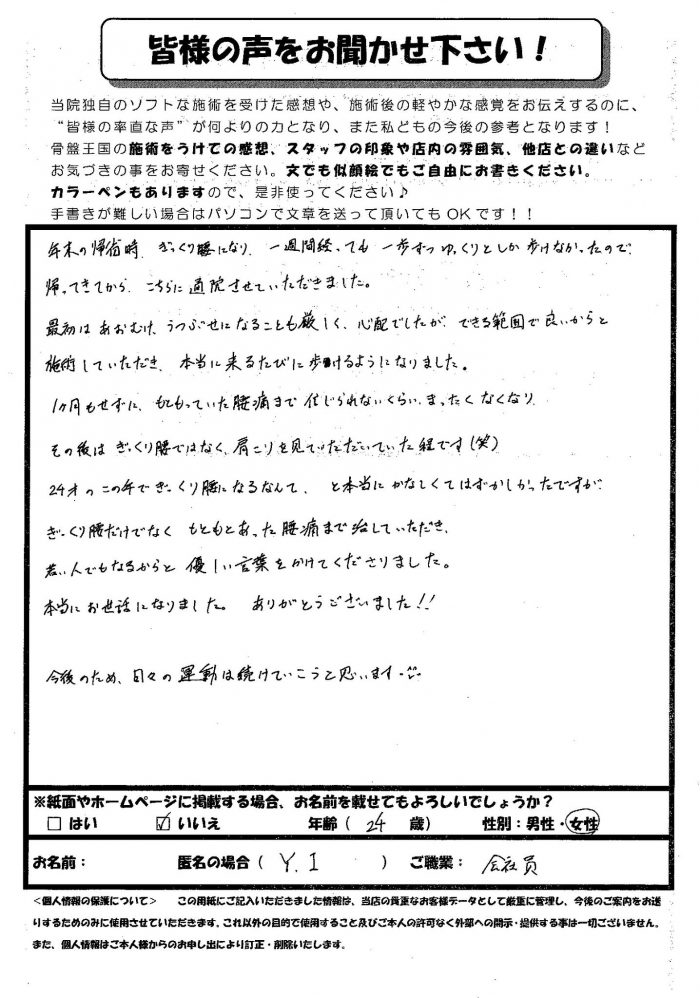 皆様の声をお聞かせ下さい！
当院独自のソフトな施術を受けた感想や、施術後の軽やかな感覚をお伝えするのに、
“皆様の率直な声”が何よりの力となり、また私どもの今後の参考となります！
骨盤王国の施術をうけての感想、スタッフの印象や店内の雰囲気、他店との違いなど
お気づきの事をお寄せください。文でも似顔絵でもご自由にお書きください。
カラーペンもありますので、是非使ってください♪
手書きが難しい場合はパソコンで文章を送って頂いてもOKです！！
年末の帰省時、ぎっくり腰になり、一週間経っても一歩ずつゆっくりとしか歩けなかったので、
帰ってきてから、こちらに通院させていただきました。
最初はあおむけ、うつぶせになることも厳しく、心配でしたが、できる範囲で良いからと
施術していただき、本当に来るたびに歩けるようになりました。
1ヶ月もせずに、もともっていた腰痛まで信じられないくらい、まったくなくなり、
その後はぎっくり腰ではなく、肩こりを見ていただいていた程です(笑)
24才のこの年でぎっくり腰になるなんて、と本当にかなしくてはずかしかったですが、
ぎっくり腰だけでなく もともとあった腰痛まで治していただき、
若い人でもなるからと優しい言葉をかけてくださりました。
本当にお世話になりました。ありがとうございました!!
今後のため、日々の運動は続けていこうと思います
※紙面やホームページに掲載する場合、お名前を載せてもよろしいでしょうか？
□ はい ☑ いいえ 年齢（ 24 歳） 性別：男性・女性
お名前： 匿名の場合（ Y.I ） ご職業： 会社員
＜個人情報の保護について＞ この用紙にご記入いただきました情報は、当店の貴重なお客様データとして厳重に管理し、今後のご案内をお送
りするためのみに使用させていただきます。これ以外の目的で使用すること及びご本人の許可なく外部への開示・提供する事は一切ございません。
また、個人情報はご本人様からのお申し出により訂正・削除いたします。